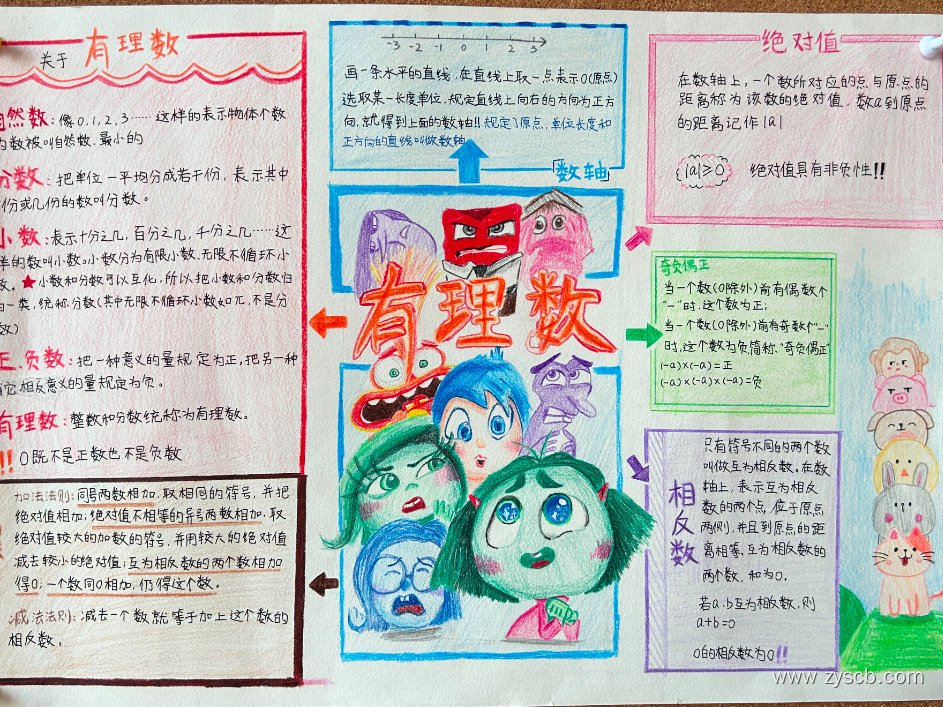 关于 有理数
自然数：像0,1,2,3……这样的表示物体个数
的数被叫自然数，最小的
分数：把单位一平均分成若干份，表示其中
一份或几份的数叫分数。
小数：表示十分之几，百分之几，千分之几……这
样的数叫小数。小数分为有限小数，无限不循环小
数。★小数和分数可以互化，所以把小数和分数归
为一类，统称分数(其中无限不循环小数如π，不是分
数)
正、负数：把一种意义的量规定为正，把另一种
和它相反意义的量规定为负。
有理数：整数和分数统称为有理数。
!! 0既不是正数也不是负数
加法法则：同号两数相加，取相同的符号，并把
绝对值相加；绝对值不相等的异号两数相加，取
绝对值较大的加数的符号，并用较大的绝对值
减去较小的绝对值；互为相反数的两个数相加
得0；一个数同0相加，仍得这个数。
减法法则：减去一个数就等于加上这个数的
相反数。
-3 -2 -1 0 1 2 3
画一条水平的直线，在直线上取一点表示0(原点)
选取某一长度单位，规定直线上向右的方向为正方
向，就得到上面的数轴!!规定了原点，单位长度和
正方向的直线叫做数轴
「数轴」
有理数
绝对值
在数轴上，一个数所对应的点与原点的
距离称为该数的绝对值，数a到原点
的距离记作|a|
|a|≥0 绝对值具有非负性!!
奇负偶正
当一个数(0除外)前有偶数个
“-”时，这个数为正；
当一个数(0除外)前有奇数个“-”
时，这个数为负，简称，“奇负偶正”
(-a)×(-a)=正
(-a)×(-a)×(-a)=负
相反数
只有符号不同的两个数
叫做互为相反数。在数
轴上，表示互为相反
数的两个点，位于原点
两侧，并且到原点的距
离相等，互为相反数的
两个数，和为0。
若a.b互为相反数，则
a+b=0
0的相反数为0!!
www.zyscb.com